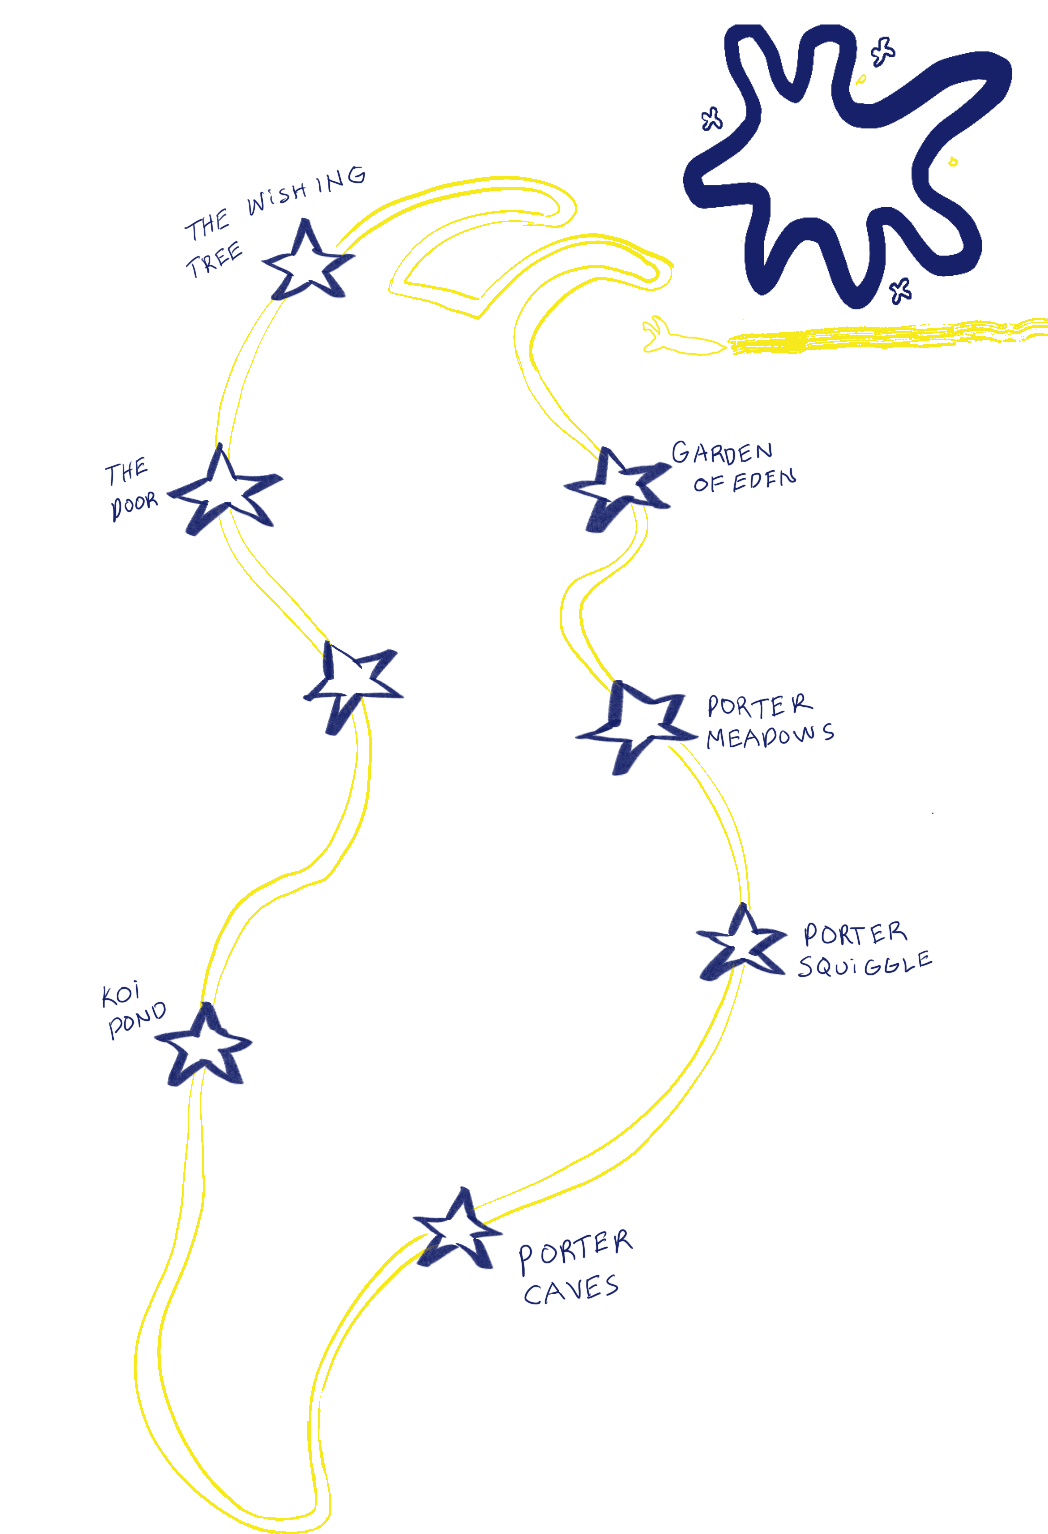 THE WiSHING
TREE
THE
DOOR
GARDEN
OF EDEN
PORTER
MEADOWS
PORTER
SQUiGGLE
KOi
POND
PORTER
CAVES